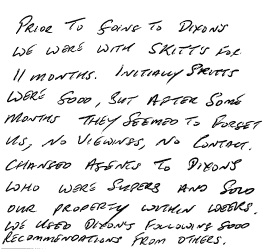 PRIOR TO GOING TO DIXONS
WE WERE WITH SKITTS FOR
11 MONTHS. INITIALLY SKITTS
WERE GOOD, BUT AFTER SOME
MONTHS THEY SEEMED TO FORGET
US, NO VIEWINGS, NO CONTACT.
CHANGED AGENTS TO DIXONS
WHO WERE SUPERB AND SOLD
OUR PROPERTY WITHIN WEEKS.
WE USED DIXONS FOLLOWING GOOD
RECOMMENDATIONS FROM OTHERS.